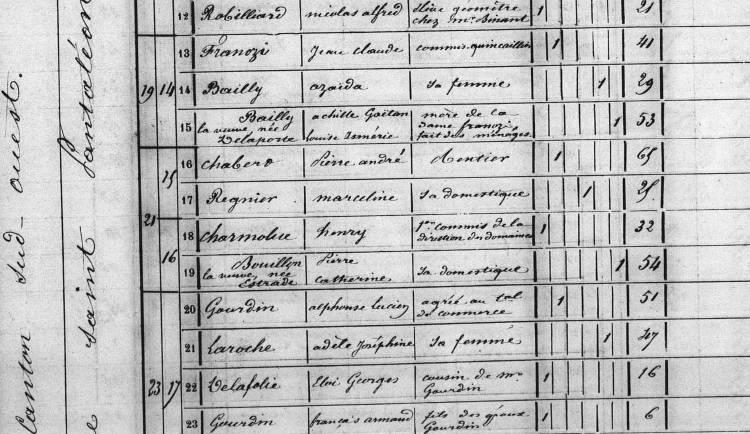 Canton sud-ouest.
saint Pantaléon
12 Robilliard nicolas alfred élève géomètre 1 21
chez mr Simant
13 Franozi Jean Claude commis quincaillier 1 41
19 14 14 Bailly azaïda sa femme 1 29
Bailly achille Gaëtan mère de la
15 la veuve née dame franozi 1 53
Delaporte louise Esmérie fait des ménages
15 16 Chabert Pierre andré Rentier 1 65
17 Regnier marceline sa domestique 1 25
21
18 Charmolue henry 1er commis de la 1 32
direction des domaines
16
Bouillon Pierre
19 la veuve née sa domestique 1 54
Estrade Catherine
20 Gourdin alphonse lucien agréé au tal 1 51
de commerce
21 Laroche adèle Joséphine sa femme 1 47
23 17 22 Delafolie Eloi Georges cousin de mr 1 16
Gourdin
23 Gourdin français armand fils des époux 1 6
Gourdin